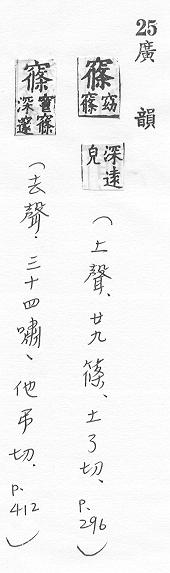 25廣韻
窱窈窱深遠皃（上聲、廿九篠、土了切、p.296）
窱竇窱深邃（去聲．三十四嘯、他吊切．p.412）